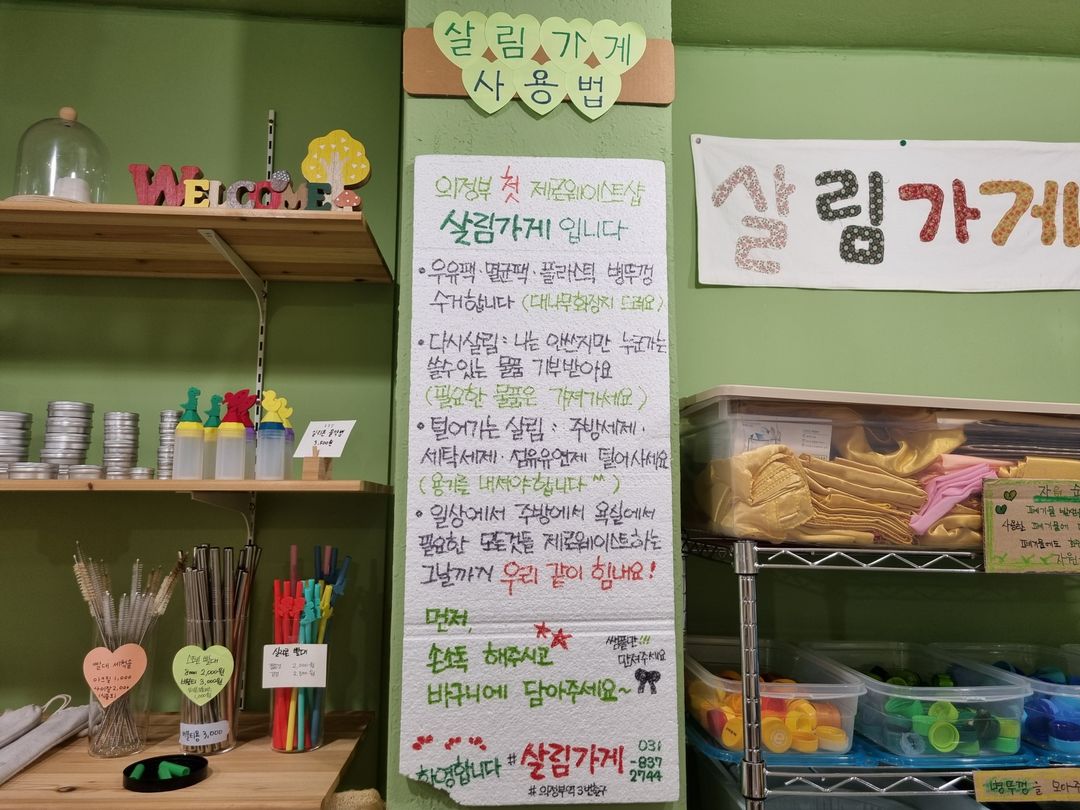 살림가게
사용법
WELCOME
의정부 첫 제로웨이스트샵
살림가게 입니다
• 우유팩·멸균팩·플라스틱 병뚜껑
수거합니다 (대나무화장지 드려요)
• 다시살림 : 나는 안쓰지만 누군가는
쓸수있는 물품 기부받아요
(필요한 물품은 가져가세요)
• 덜어가는 살림 : 주방세제·
세탁세제·섬유유연제 덜어사세요
(용기를 내셔야합니다 ^^)
• 일상에서 주방에서 욕실에서
필요한 모든것들 제로웨이스트하는
그날까지 우리 같이 힘내요!
먼저,
손소독 해주시고
바구니에 담아주세요~
샘플만!!!
만져주세요
환영합니다
#살림가게
031
-837
2744
#의정부역 3번출구
살림가게
3,500원
빨대 세척솔
1,000
2,000
스텐 빨대
2,000원
버블티 3,000원
버블티용 3,000
실리콘 빨대
2,000원
2,500원
자원순
사용한
병뚜껑을 모아